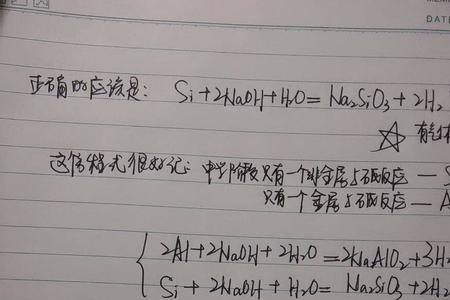 DATE
正确的应该是: Si+2NaOH+H2O=Na2SiO3+2H2
☆ 有
这个很好记: 中学阶段只有一个非金属与碱反应 — S
只有一个金属与碱反应 — A
2Al+2NaOH+2H2O=2NaAlO2+3H
Si+2NaOH+H2O=Na2SiO3+2H2